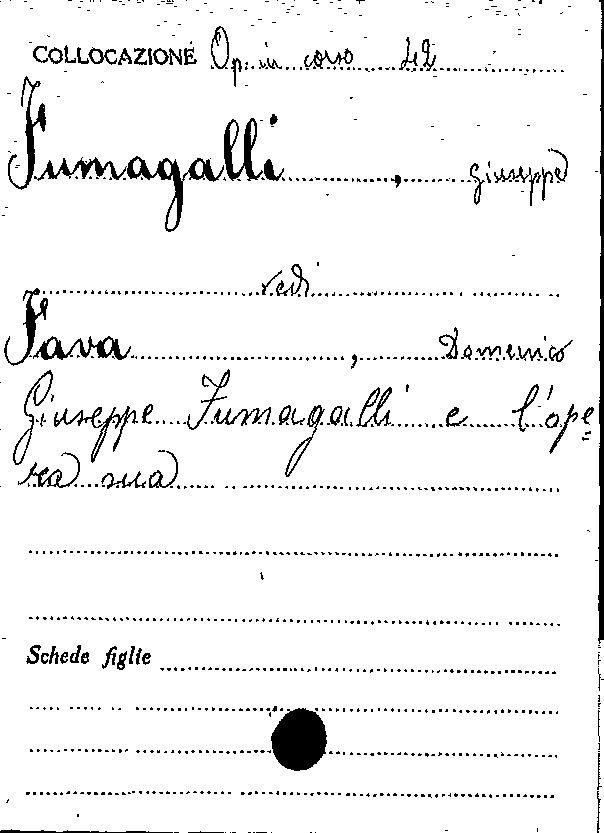 COLLOCAZIONE Op. in corso 42
Fumagalli, Giuseppe
vedi
Fava, Domenico
Giuseppe Fumagalli e l'ope=
ra sua
Schede figlie